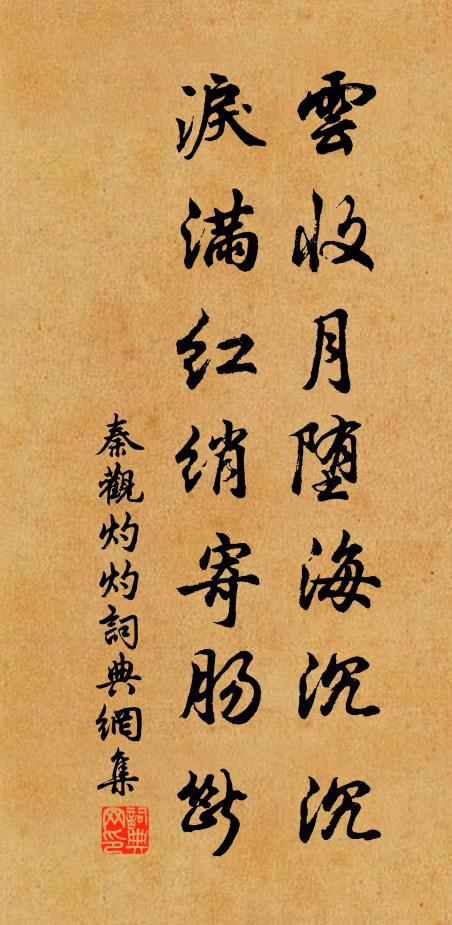 雲收月堕海沉沉
淚滿红綃寄肠斷
秦觀灼灼詞典網集
詞典网印